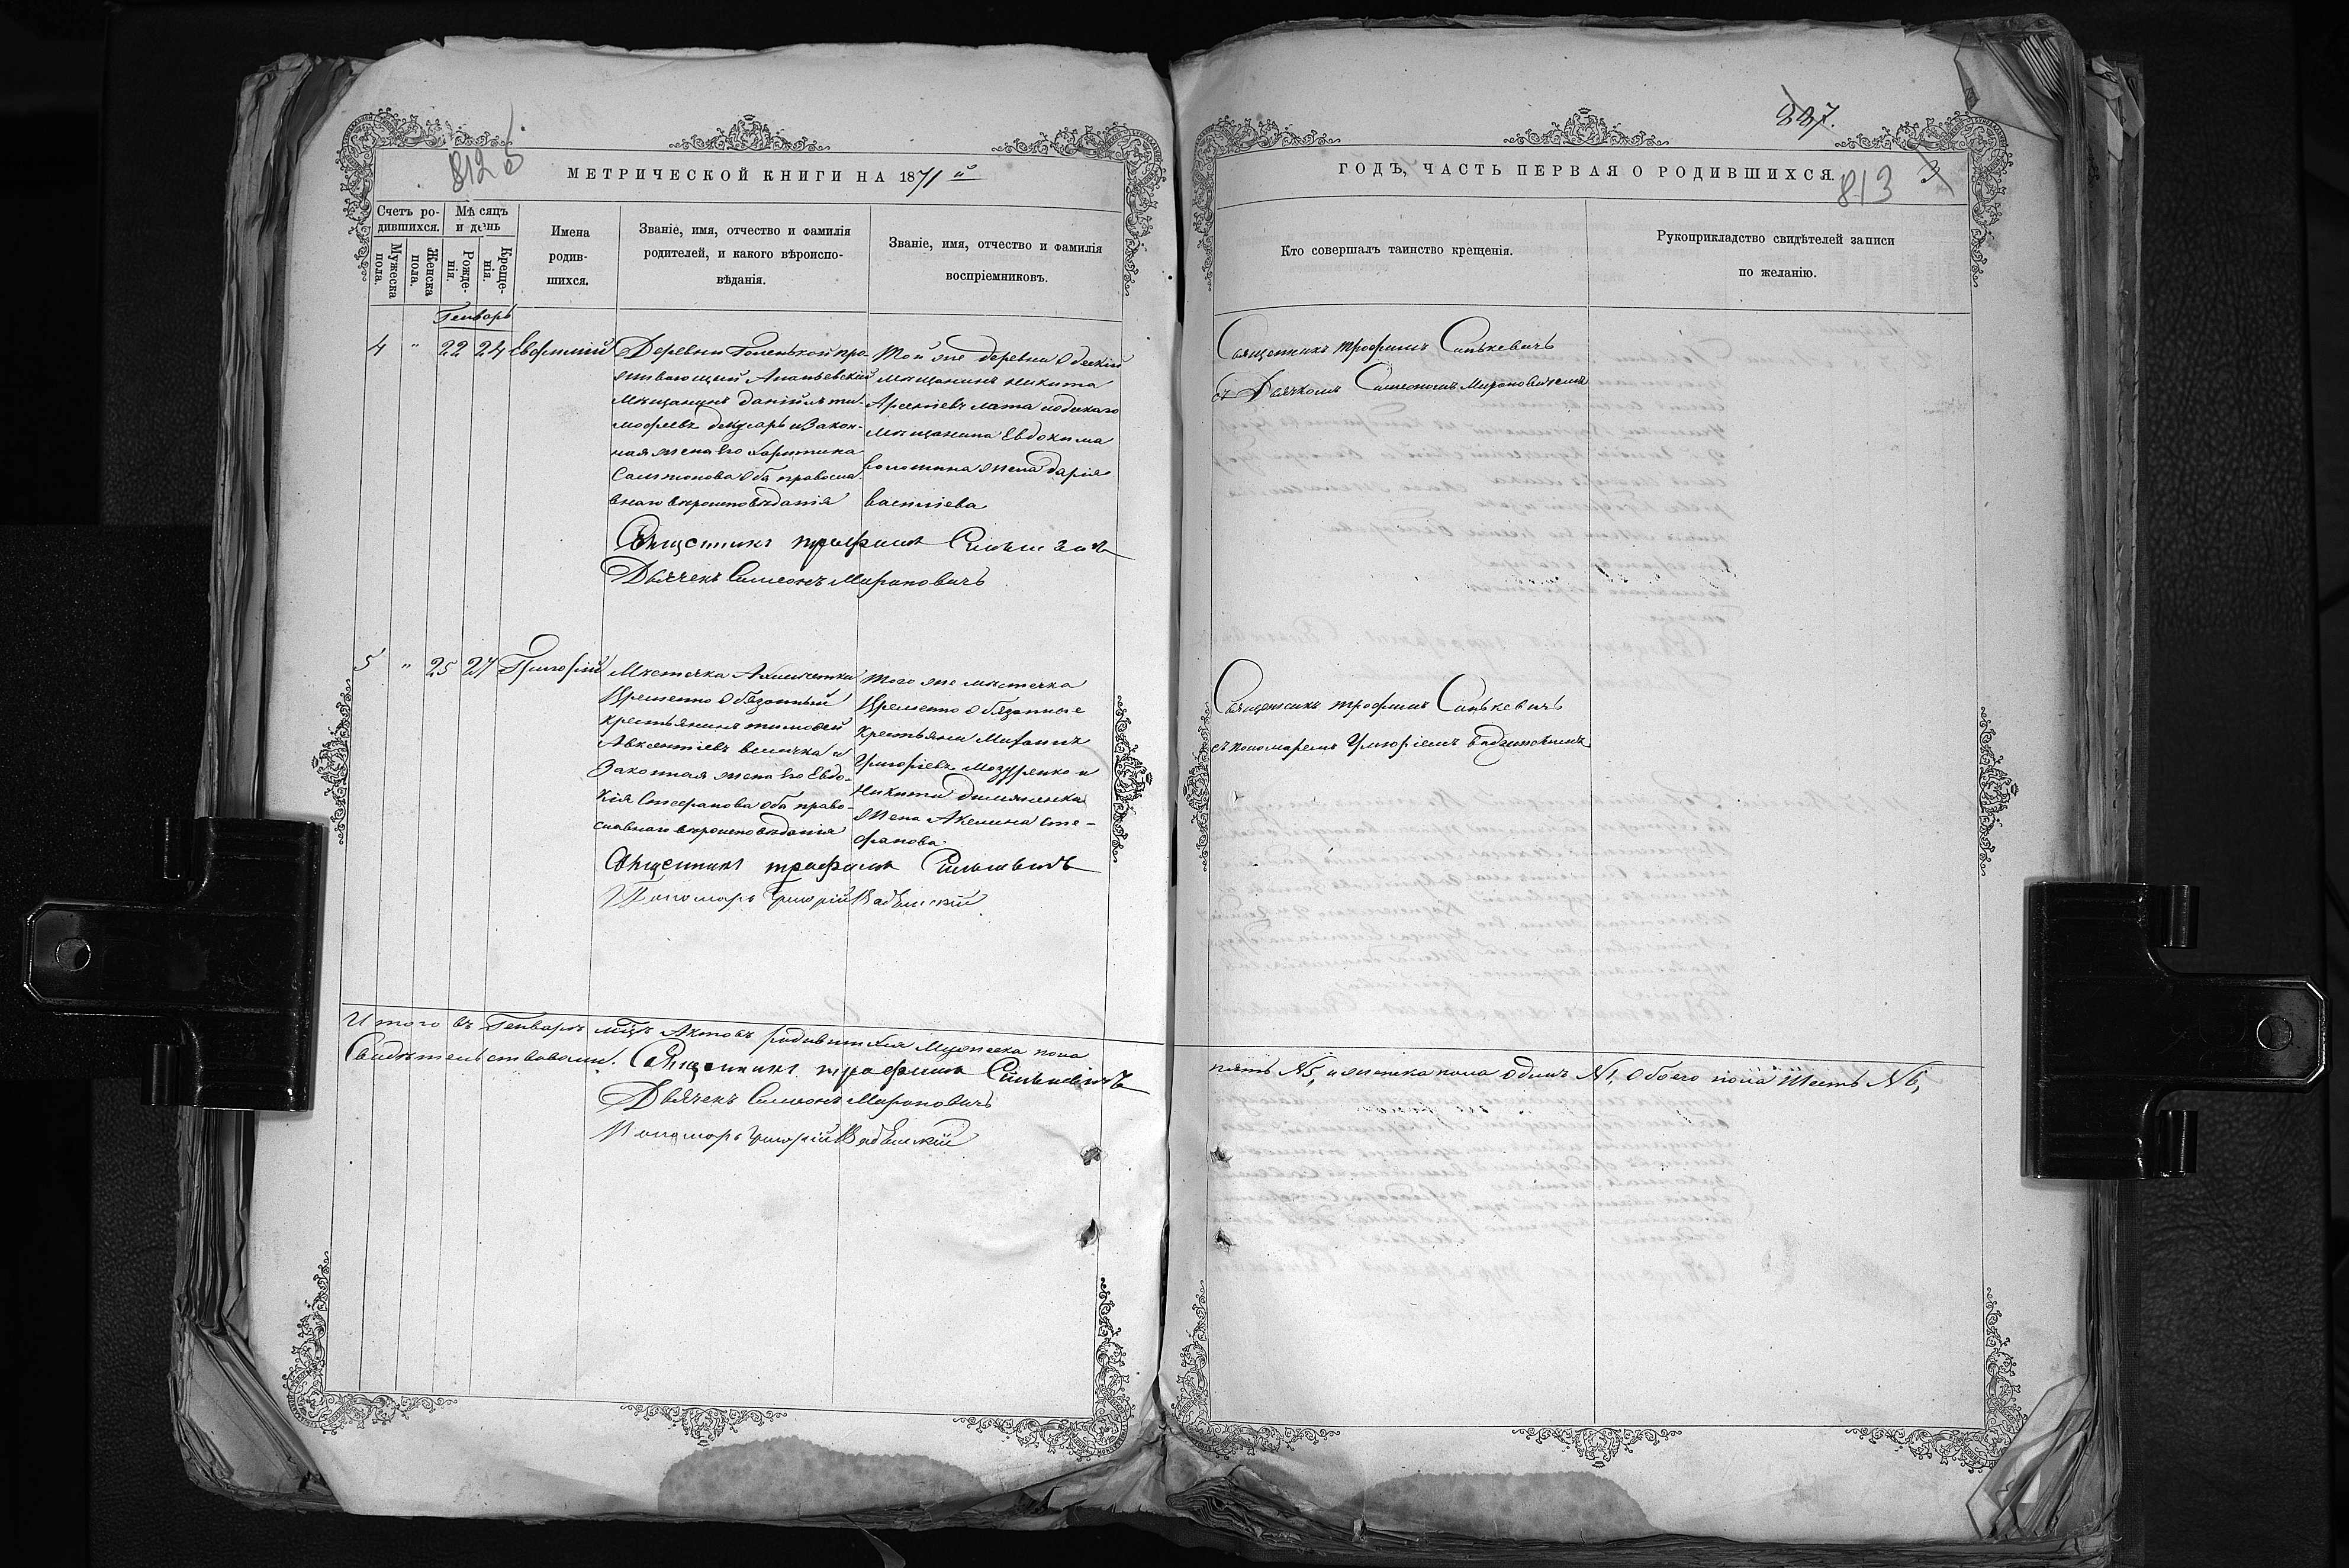 812 б
МЕТРИЧЕСКОЙ КНИГИ НА 1871й
Счетъ ро-
дившихся.
Мужеска
пола.
Женска
пола.
Мѣсяцъ
и день
Рожде-
нія.
Креще-
нія.
Имена
родив-
шихся.
Званіе, имя, отчество и фамилія
родителей, и какого вѣроиспо-
вѣданія.
Званіе, имя, отчество и фамилія
воспріемниковъ.
Генварь
4 " 22 24 Евфимій
Деревни про-
живающий Ананьевскій
мѣщанинъ Даніилъ ти-
мофеевъ и Закон-
ная жена его Харитина
Самсонова Оба правосла-
внаго вѣроисповѣданія
Той же деревни Одескій
мѣщанинъ Никита
Арсеніевъ и одескаго
мѣщанина Евдокима
Волошина жена Дарія
Василіева
Священникъ Трофимъ Синькевичъ
Дьячекъ Симеонъ Мироновичъ
5 " 25 27 Григорій
Мѣстечка Ахмечетки
Временно Обязанный
крестьянинъ тимофей
Авксентіевъ величка и
Законная жена его Евдо-
кія Стефанова Оба право-
славнаго вѣроисповѣданія
Того же мѣстечка
Временно Обязанные
крестьяни Миронъ
Григоріевъ Мазуренко и
Никиты
жена Акелина Сте-
фанова
Священникъ Трофимъ Синькевичъ
Пономарь Григорій Бадзинскій
Итого въ Генварѣ мцѣ Актовъ родившихся Мужеска пола
Свидѣтельствовали: Священникъ Трофимъ Синькевичъ
Дьячекъ Симеонъ Мироновичъ
Пономарь Григорій Бадзинскій
227.
ГОДЪ, ЧАСТЬ ПЕРВАЯ О РОДИВШИХСЯ.
813
3
Кто совершалъ таинство крещенія.
Рукоприкладство свидѣтелей записи
по желанію.
Священникъ Трофимъ Синькевичъ
съ Дьячкомъ Симеономъ Мироновичемъ
Священникъ Трофимъ Синькевичъ
съ пономаремъ Григоріемъ Бадзинскимъ
пять №5, и женска пола Одинъ №1, Обоего пола Шесть №6,